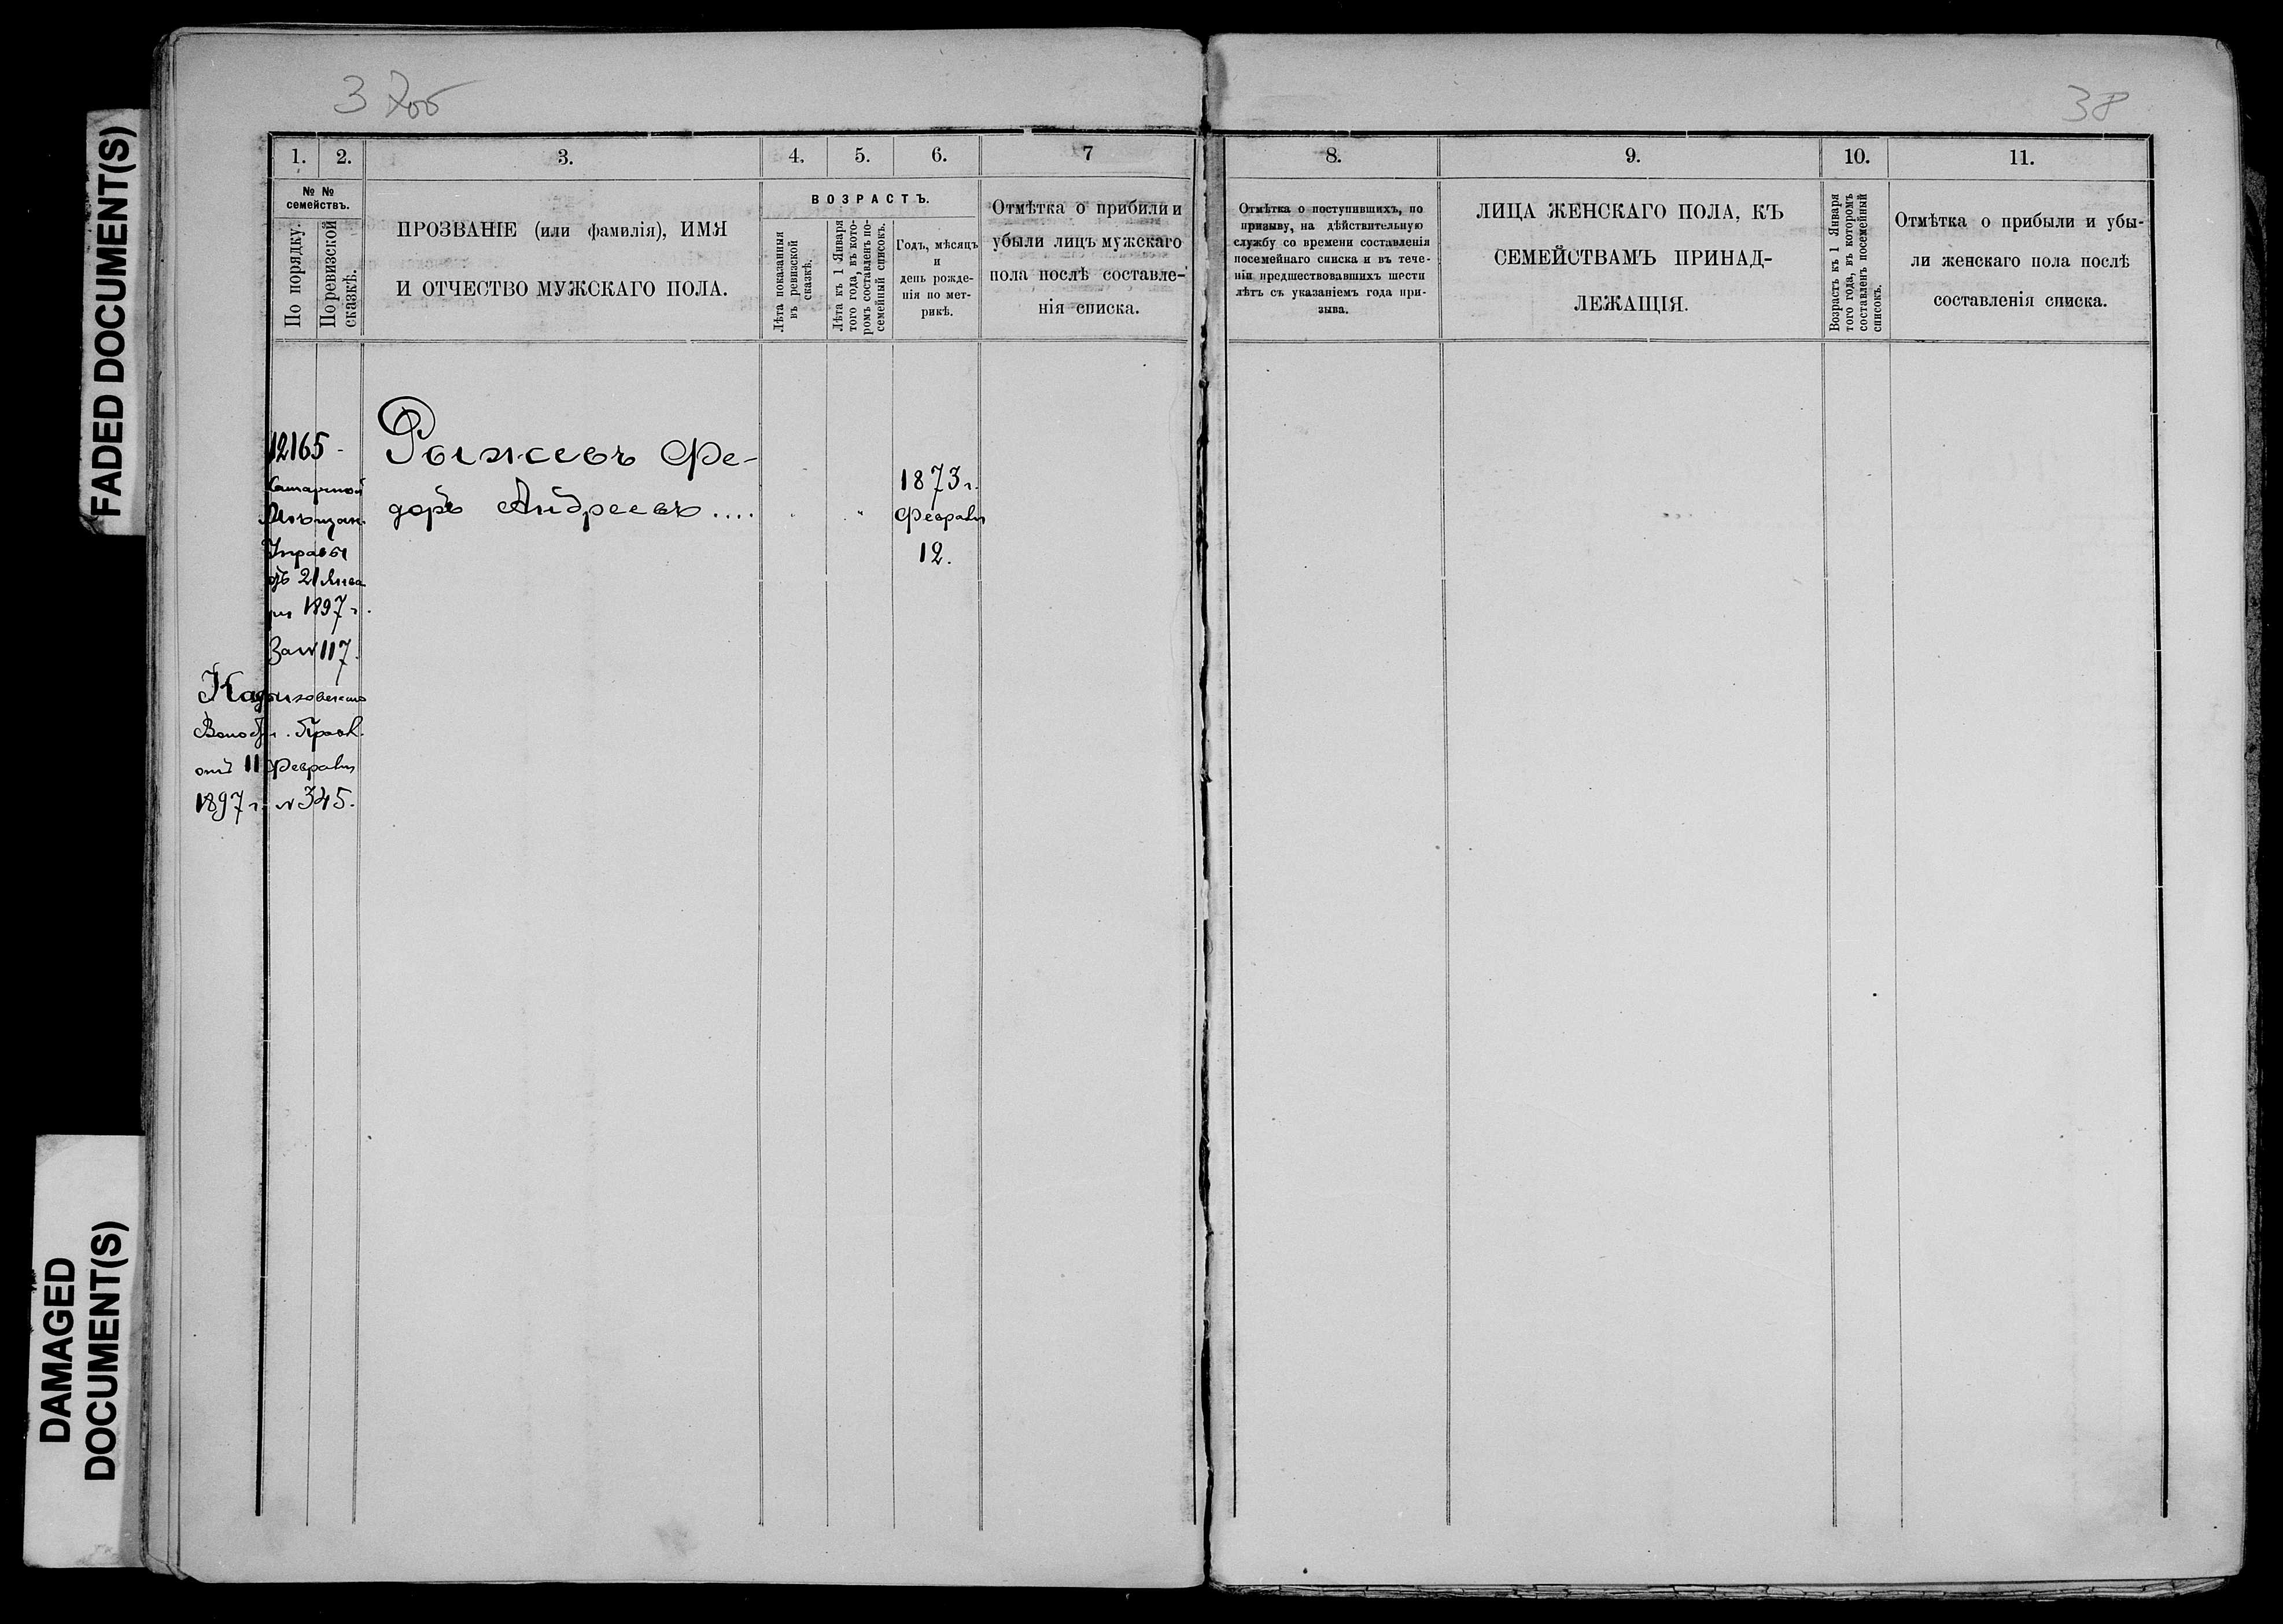 FADED DOCUMENT(S)
DAMAGED
DOCUMENT(S)
37об
38
1.
2.
3.
4.
5.
6.
7
№ №
семействъ.
По порядку.
По ревизской
сказкѣ.
ПРОЗВАНІЕ (или фамилія), ИМЯ
И ОТЧЕСТВО МУЖСКАГО ПОЛА.
ВОЗРАСТЪ.
Лѣта показанныя
въ ревизской
сказкѣ.
Лѣта къ 1 Января
того года, въ кото-
ромъ составленъ по-
семейный списокъ.
Годъ, мѣсяцъ
и
день рожде-
нія по мет-
рикѣ.
Отмѣтка о прибыли и
убыли лицъ мужскаго
пола послѣ составле-
нія списка.
8.
9.
10.
11.
Отмѣтка о поступившихъ, по
призыву, на дѣйствительную
службу со времени составленія
посемейнаго списка и въ тече-
ніи предшествовавшихъ шести
лѣтъ съ указаніемъ года при-
зыва.
ЛИЦА ЖЕНСКАГО ПОЛА, КЪ
СЕМЕЙСТВАМЪ ПРИНАД-
ЛЕЖАЩІЯ.
Возрастъ къ 1 Января
того года, въ которомъ
составленъ посемейный
списокъ.
Отмѣтка о прибыли и убы-
ли женскаго пола послѣ
составленія списка.
12165 -
Рыжевъ Фе-
доръ Андреевъ ....
1873 г.
Февраля
12.
Управы
21 Янва
ря 1897 г.
За № 117.
Правл.
отъ 11 Февраля
1897 г. № 345.